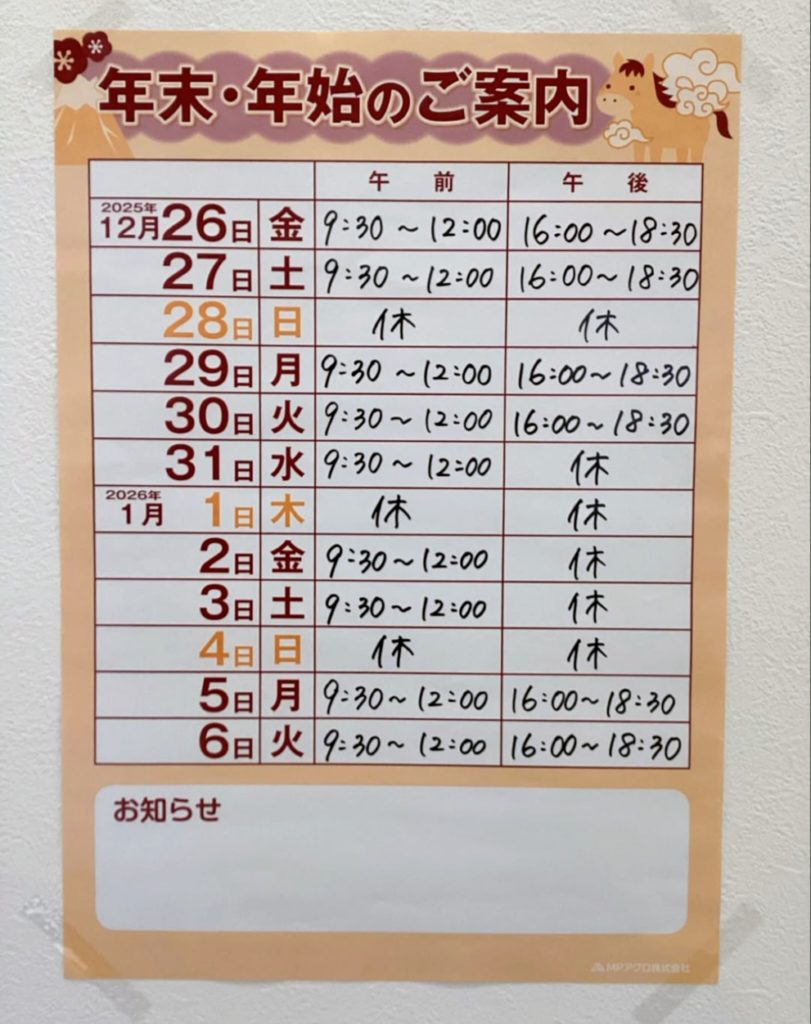 年末・年始のご案内
午前 午後
2025年
12月26日 金 9:30～12:00 16:00～18:30
27日 土 9:30～12:00 16:00～18:30
28日 日 休 休
29日 月 9:30～12:00 16:00～18:30
30日 火 9:30～12:00 16:00～18:30
31日 水 9:30～12:00 休
2026年
1月 1日 木 休 休
2日 金 9:30～12:00 休
3日 土 9:30～12:00 休
4日 日 休 休
5日 月 9:30～12:00 16:00～18:30
6日 火 9:30～12:00 16:00～18:30
お知らせ
MPアグロ株式会社